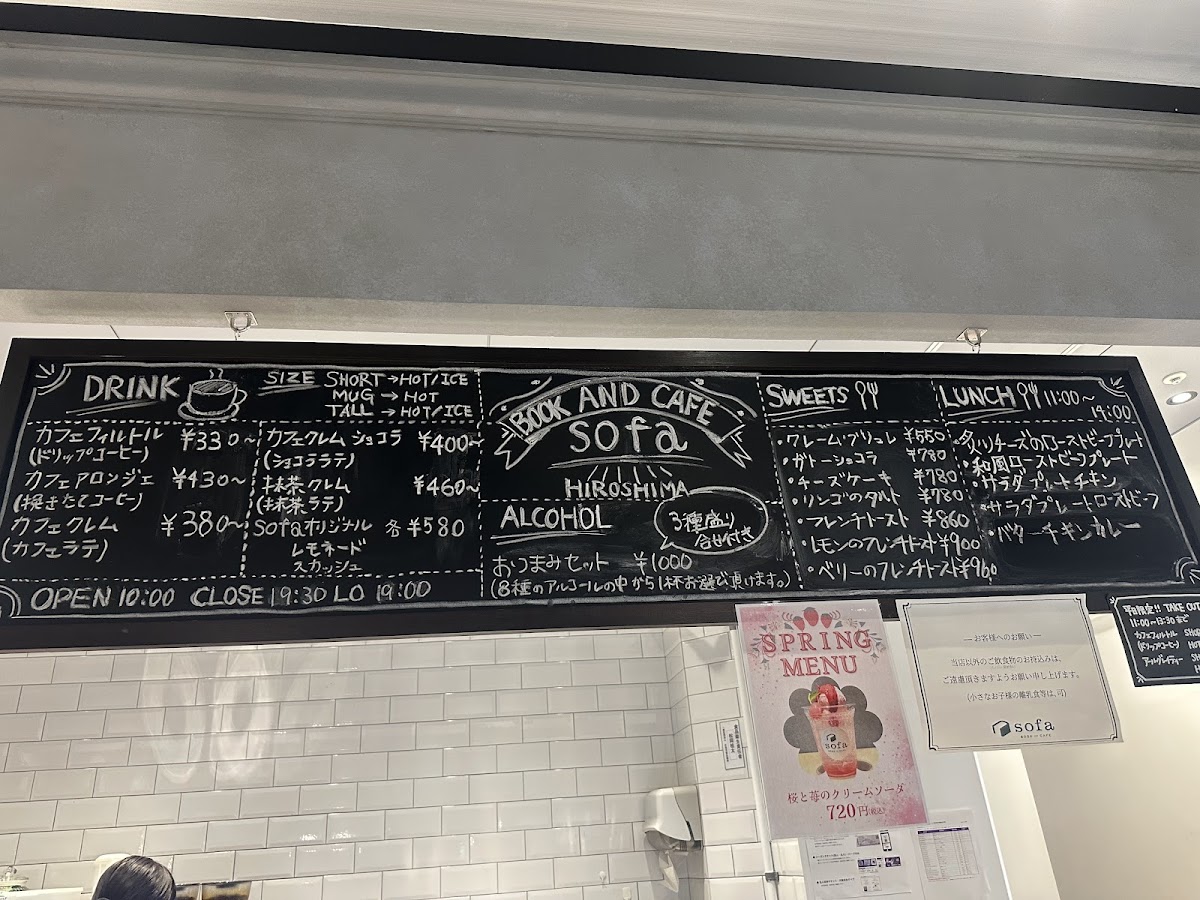 DRINK
SIZE SHORT→HOT/ICE
MUG→HOT
TALL→HOT/ICE
カフェフィルトル ¥330~
(ドリップコーヒー)
カフェアロンジェ ¥430~
(挽きたてコーヒー)
カフェクレム ¥380~
(カフェラテ)
カフェクレム ショコラ ¥400~
(ショコララテ)
抹茶クレム ¥460~
(抹茶ラテ)
Sofaオリジナル 各¥580
レモネード
スカッシュ
OPEN 10:00 CLOSE 19:30 LO 19:00
BOOK AND CAFE
sofa
HIROSHIMA
ALCOHOL
3種盛り
合せ付き
おつまみセット ¥1000
(8種のアルコールの中から1杯お選び頂けます。)
SWEETS
・クレームブリュレ ¥550
・ガトーショコラ ¥780
・チーズケーキ ¥780
・リンゴのタルト ¥780
・フレンチトースト ¥860
・レモンのフレンチトースト¥960
・ベリーのフレンチトースト¥960
LUNCH 11:00~
19:00
・炙りチーズのローストビーフプレート
・和風ローストビーフプレート
・サラダプレートチキン
・サラダプレートローストビーフ
・バターチキンカレー
SPRING
MENU
sofa
桜と苺のクリームソーダ
720円(税込)
―お客様へのお願い―
当店以外のご飲食物のお持込みは、
ご遠慮頂きますようお願い申し上げます。
(小さなお子様の離乳食等は、可)
sofa
BOOK & CAFE
平日限定!! TAKE OUT
11:00~13:30まで
カフェフィルトル
(ドリップコーヒー)
アールグレイティー